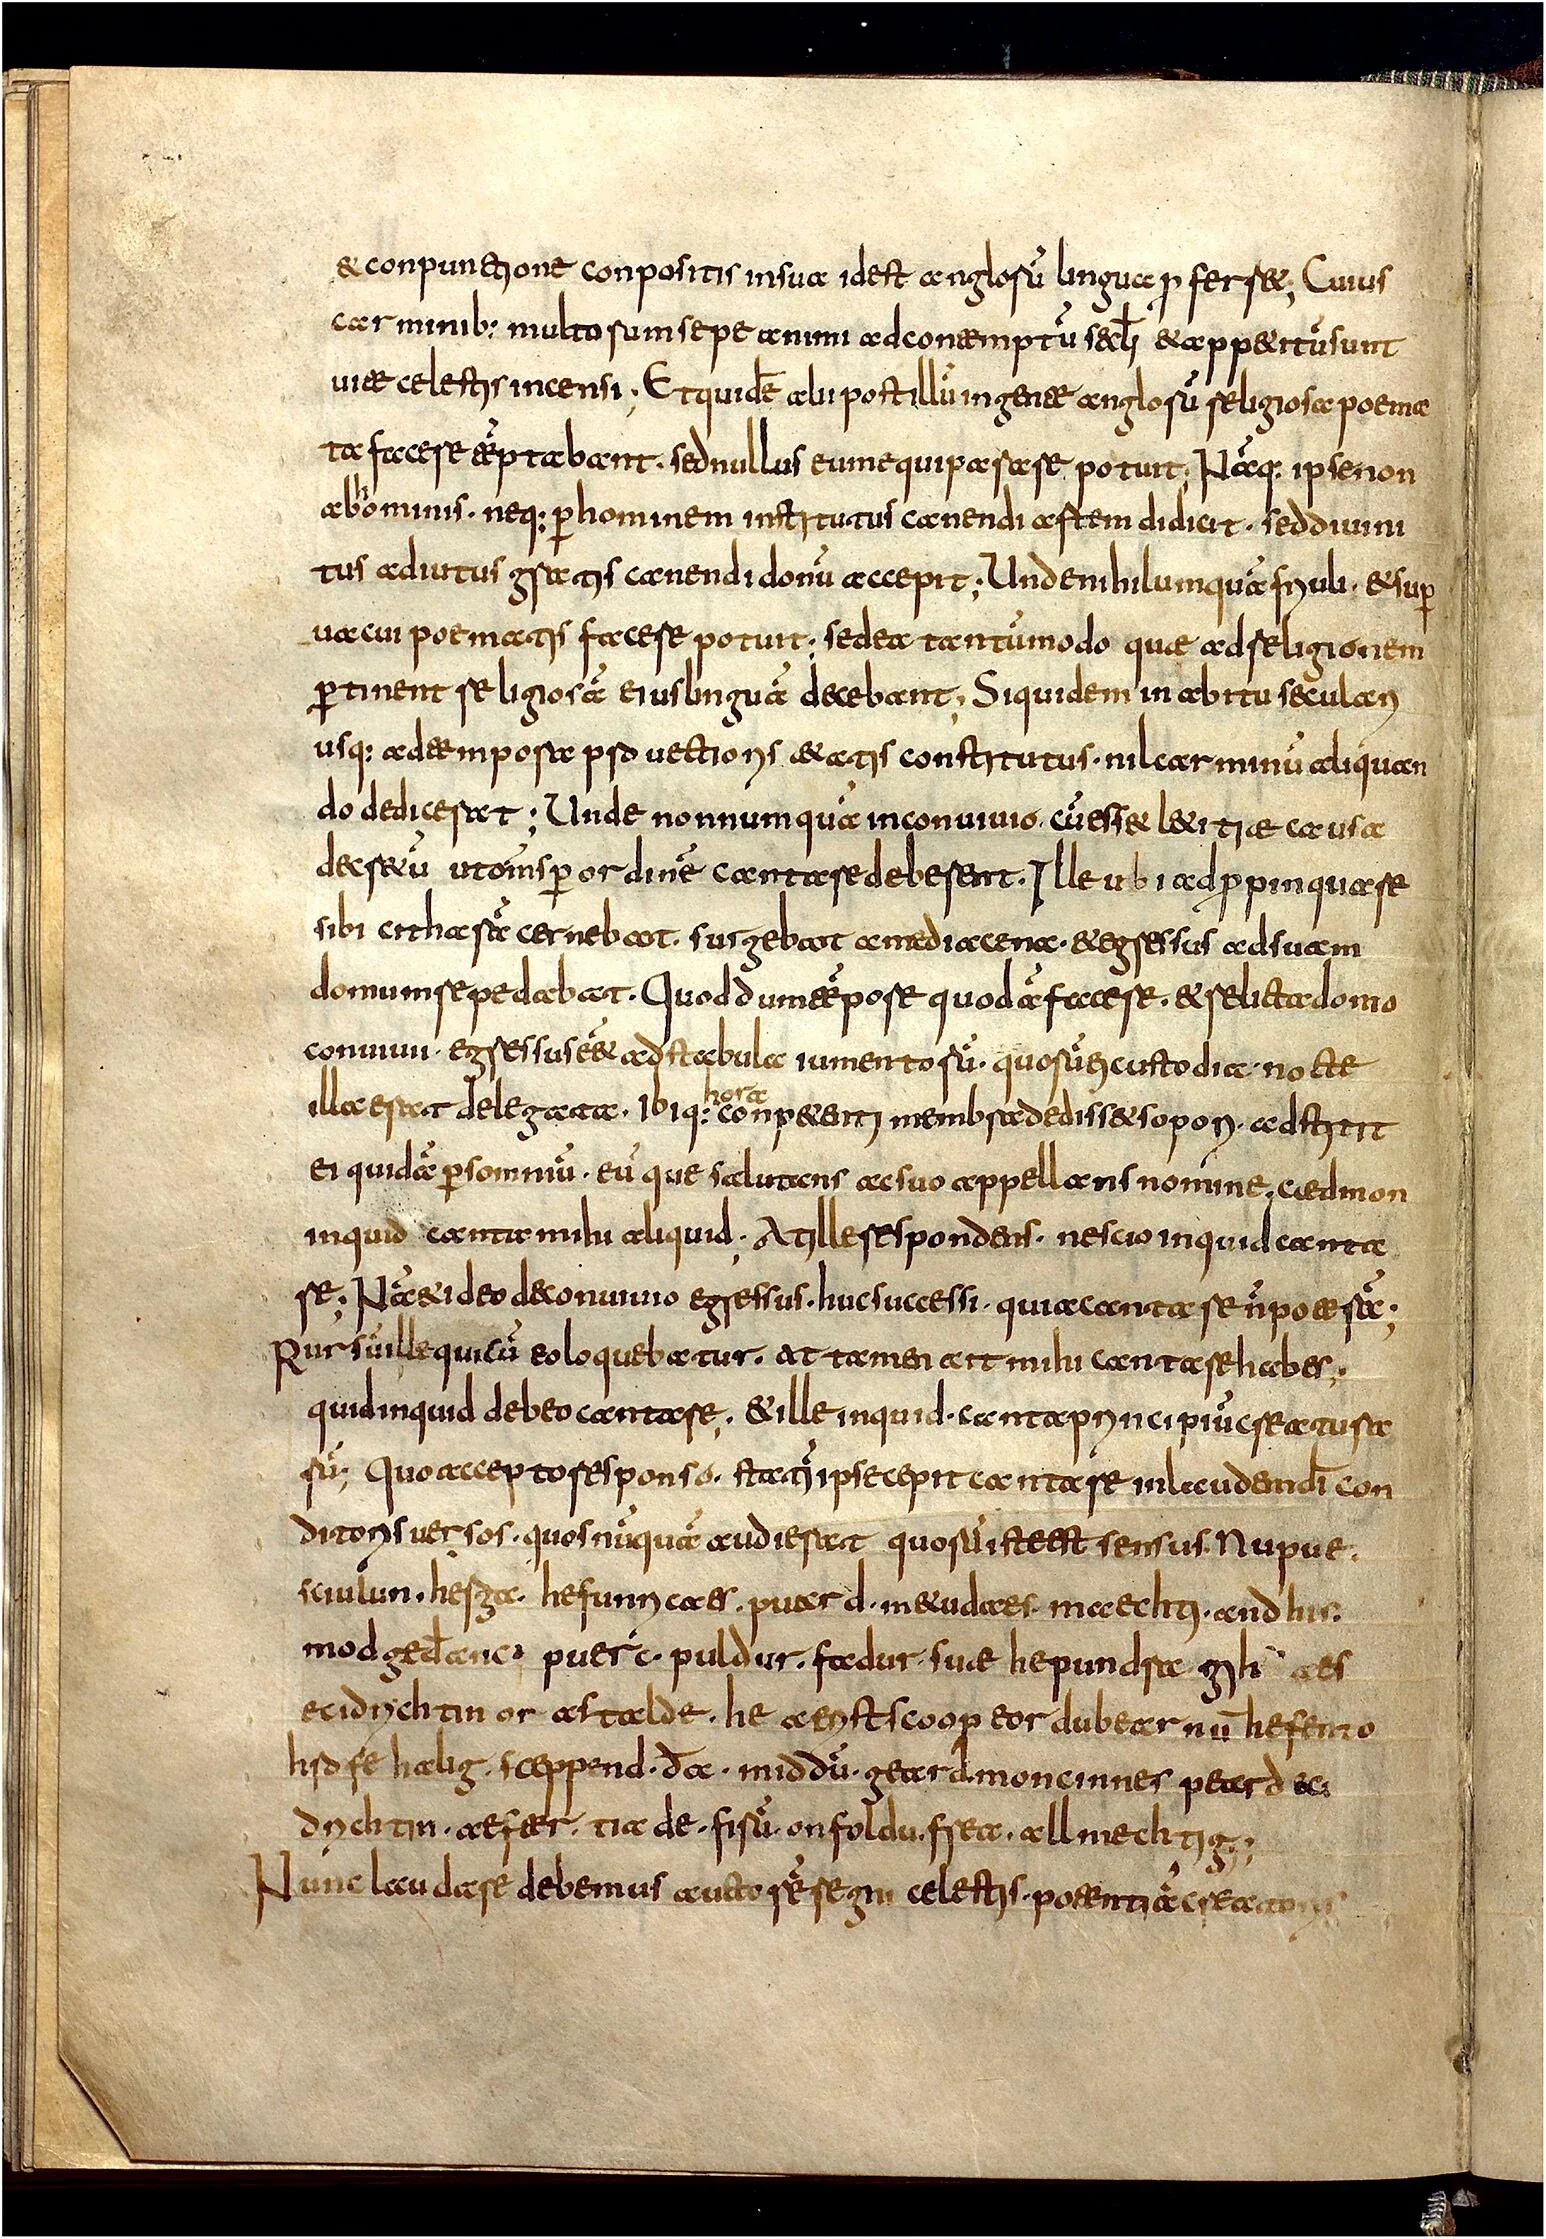 & conpunctione conpositis in sua id est anglorū lingua proferret; Cuius
carminib: multorum sepe animi ad contemptū sęcłi & appetitū sunt
uitae celestis incensi; Et quidē alii post illū in gente anglorū religiosa poema
ta facere tēptabant. sed nullus eum equiparare potuit; Nāq: ipse non
ab hominis. neq: p̱ hominem institutus canendi artem didicit. sed diuini
tus adiutus gratis canendi donū accepit; Unde nihil umquā friuoli. & sup̱
uacui poematis facere potuit; sed ea tantūmodo quae ad religionem
p̱tinent religiosā eius linguā decebant; Siquidem in abitu seculari
usq: ad tempora prouectioris aetatis constitutus. nil carminū aliquan
do dedicerat; Unde nonnumquā in conuiuio. cū esset letitiae causa
decretū ut om̄s p̱ ordinē cantare deberent. Ille ubi adpropinquare
sibi citharā cernebat. surgebat a media cena. & egressus ad suam
domum sepedabat. Quod dum tēpore quodā faceret. & relicta domo
conuiuii. egressus eēt ad stabula iumentorū. quorū ei custodia nocte
illa erat delegata. Ibiq: hora conpetenti membra dedisset sopori. adstitit
ei quidā p̱ somniū. eūque salutans ac suo appellans nomine. caedmon
inquid canta mihi aliquid. At ille respondens. nescio inquid canta
re; Nā & ideo de conuiuio egressus. huc successi. quia cantare n̄ poterā;
Rursū ille qui cū eo loquebatur. at tamen ait mihi cantare habes;
quid inquid debeo cantare. & ille inquid. canta principiū creatura
rū; Quo accepto responso. statī ipse cepit cantare in laudem dī con
ditoris uersos. quos nūquā audierat quorū iste est sensus. Nu ƿue.
sciulun. herga. hefunricaes. ƿuard. metudaes. maechti. and his.
mod gedanc. ƿuerc. ƿuldur. fadur. suae he ƿundra gih aes
eci drychtin or astalde. he aerist scoop eor du bearnū hefen to
hrofe halig. sceppend. da. middū. geard. moncinnes ƿeard eci
drychtin. aefter. tia de. firū. on foldu. frea. allmechtig;
Nunc laudare debemus auctorē regni celestis. potentiā creatoris